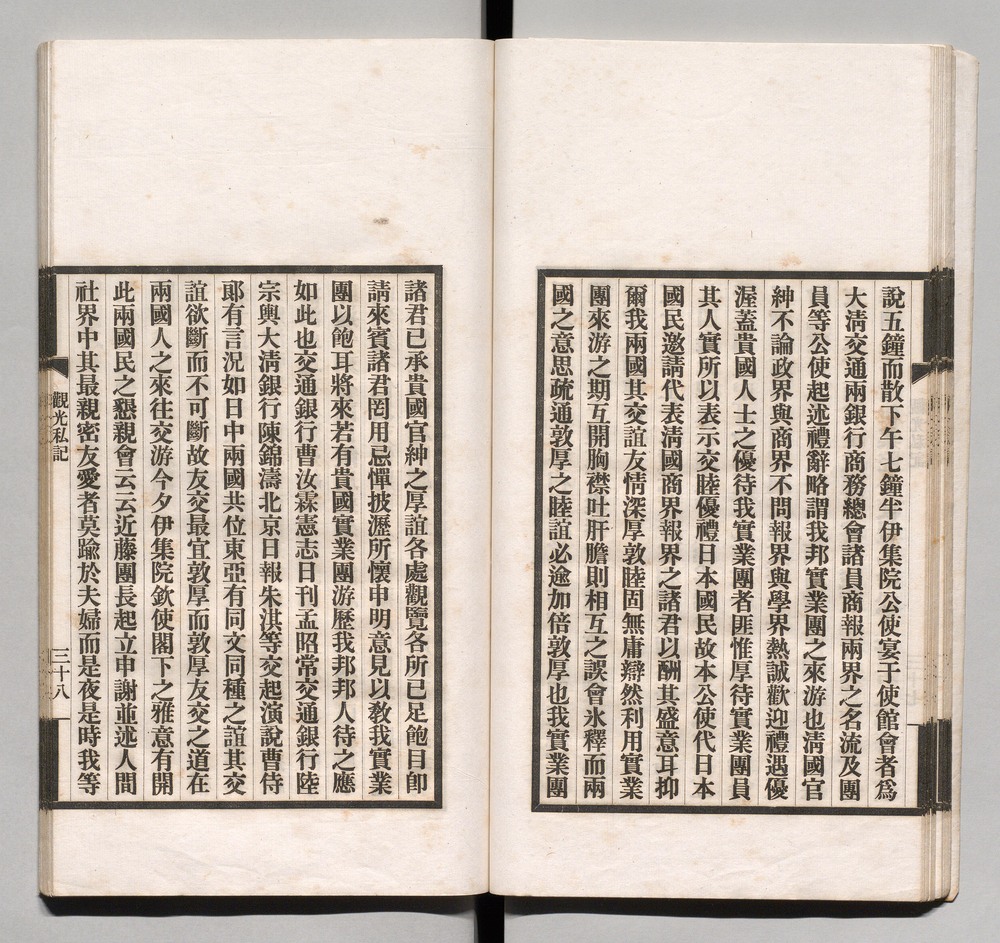 說五鐘而散下午七鐘半伊集院公使宴于使館會者爲
大淸交通兩銀行商務總會諸員商報兩界之名流及團
員等公使起述禮辭略謂我邦實業團之來游也淸國官
紳不論政界與商界不問報界與學界熱誠歡迎禮遇優
渥蓋貴國人士之優待我實業團者匪惟厚待實業團員
其人實所以表示交睦優禮日本國民故本公使代日本
國民邀請代表淸國商界報界之諸君以酬其盛意耳抑
爾我兩國其交誼友情深厚敦睦固無庸辯然利用實業
團來游之期互開胸襟吐肝膽則相互之誤會氷釋而兩
國之意思疏通敦厚之睦誼必逾加倍敦厚也我實業團
諸君已承貴國官紳之厚誼各處觀覽各所已足飽目卽
請來賓諸君罔用忌憚披瀝所懷申明意見以敎我實業
團以飽耳將來若有貴國實業團游歷我邦邦人待之應
如此也交通銀行曹汝霖憲志日刊孟昭常交通銀行陸
宗輿大淸銀行陳錦濤北京日報朱淇等交起演說曹侍
郎有言況如日中兩國共位東亞有同文同種之誼其交
誼欲斷而不可斷故友交最宜敦厚而敦厚友交之道在
兩國人之來往交游今夕伊集院欽使閣下之雅意有開
此兩國民之懇親會云云近藤團長起立申謝並述人間
社界中其最親密友愛者莫踰於夫婦而是夜是時我等
觀光私記
三十八